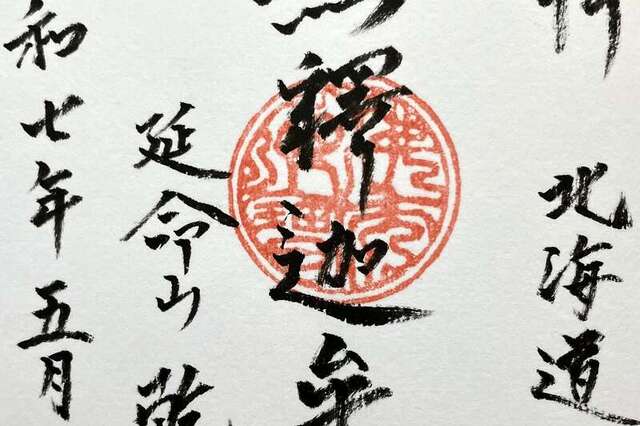 北海道
釋迦牟
延命山
和七年五月